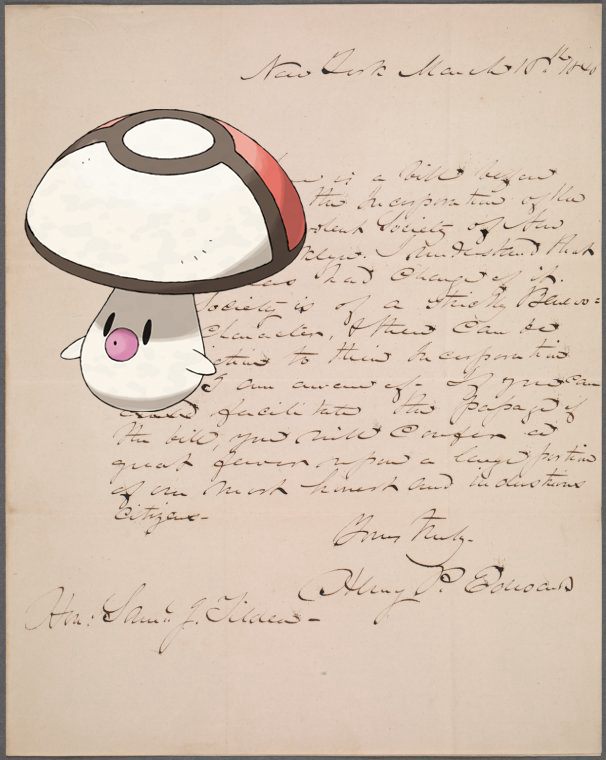 New York March 18th 1846
is a bill before
the Incorporation of the
Society of New
I understand that
had charge of it.
Society is of a strictly Benevo=
Character, & there can be
to their Incorporation
I am aware of. If you can
facilitate the passage of
the bill, you will confer a
great favor upon a large portion
of our most honest and industrious
Citizens-
Yours truly.
Henry P. Edwards
Hon: Saml. J. Tilden-